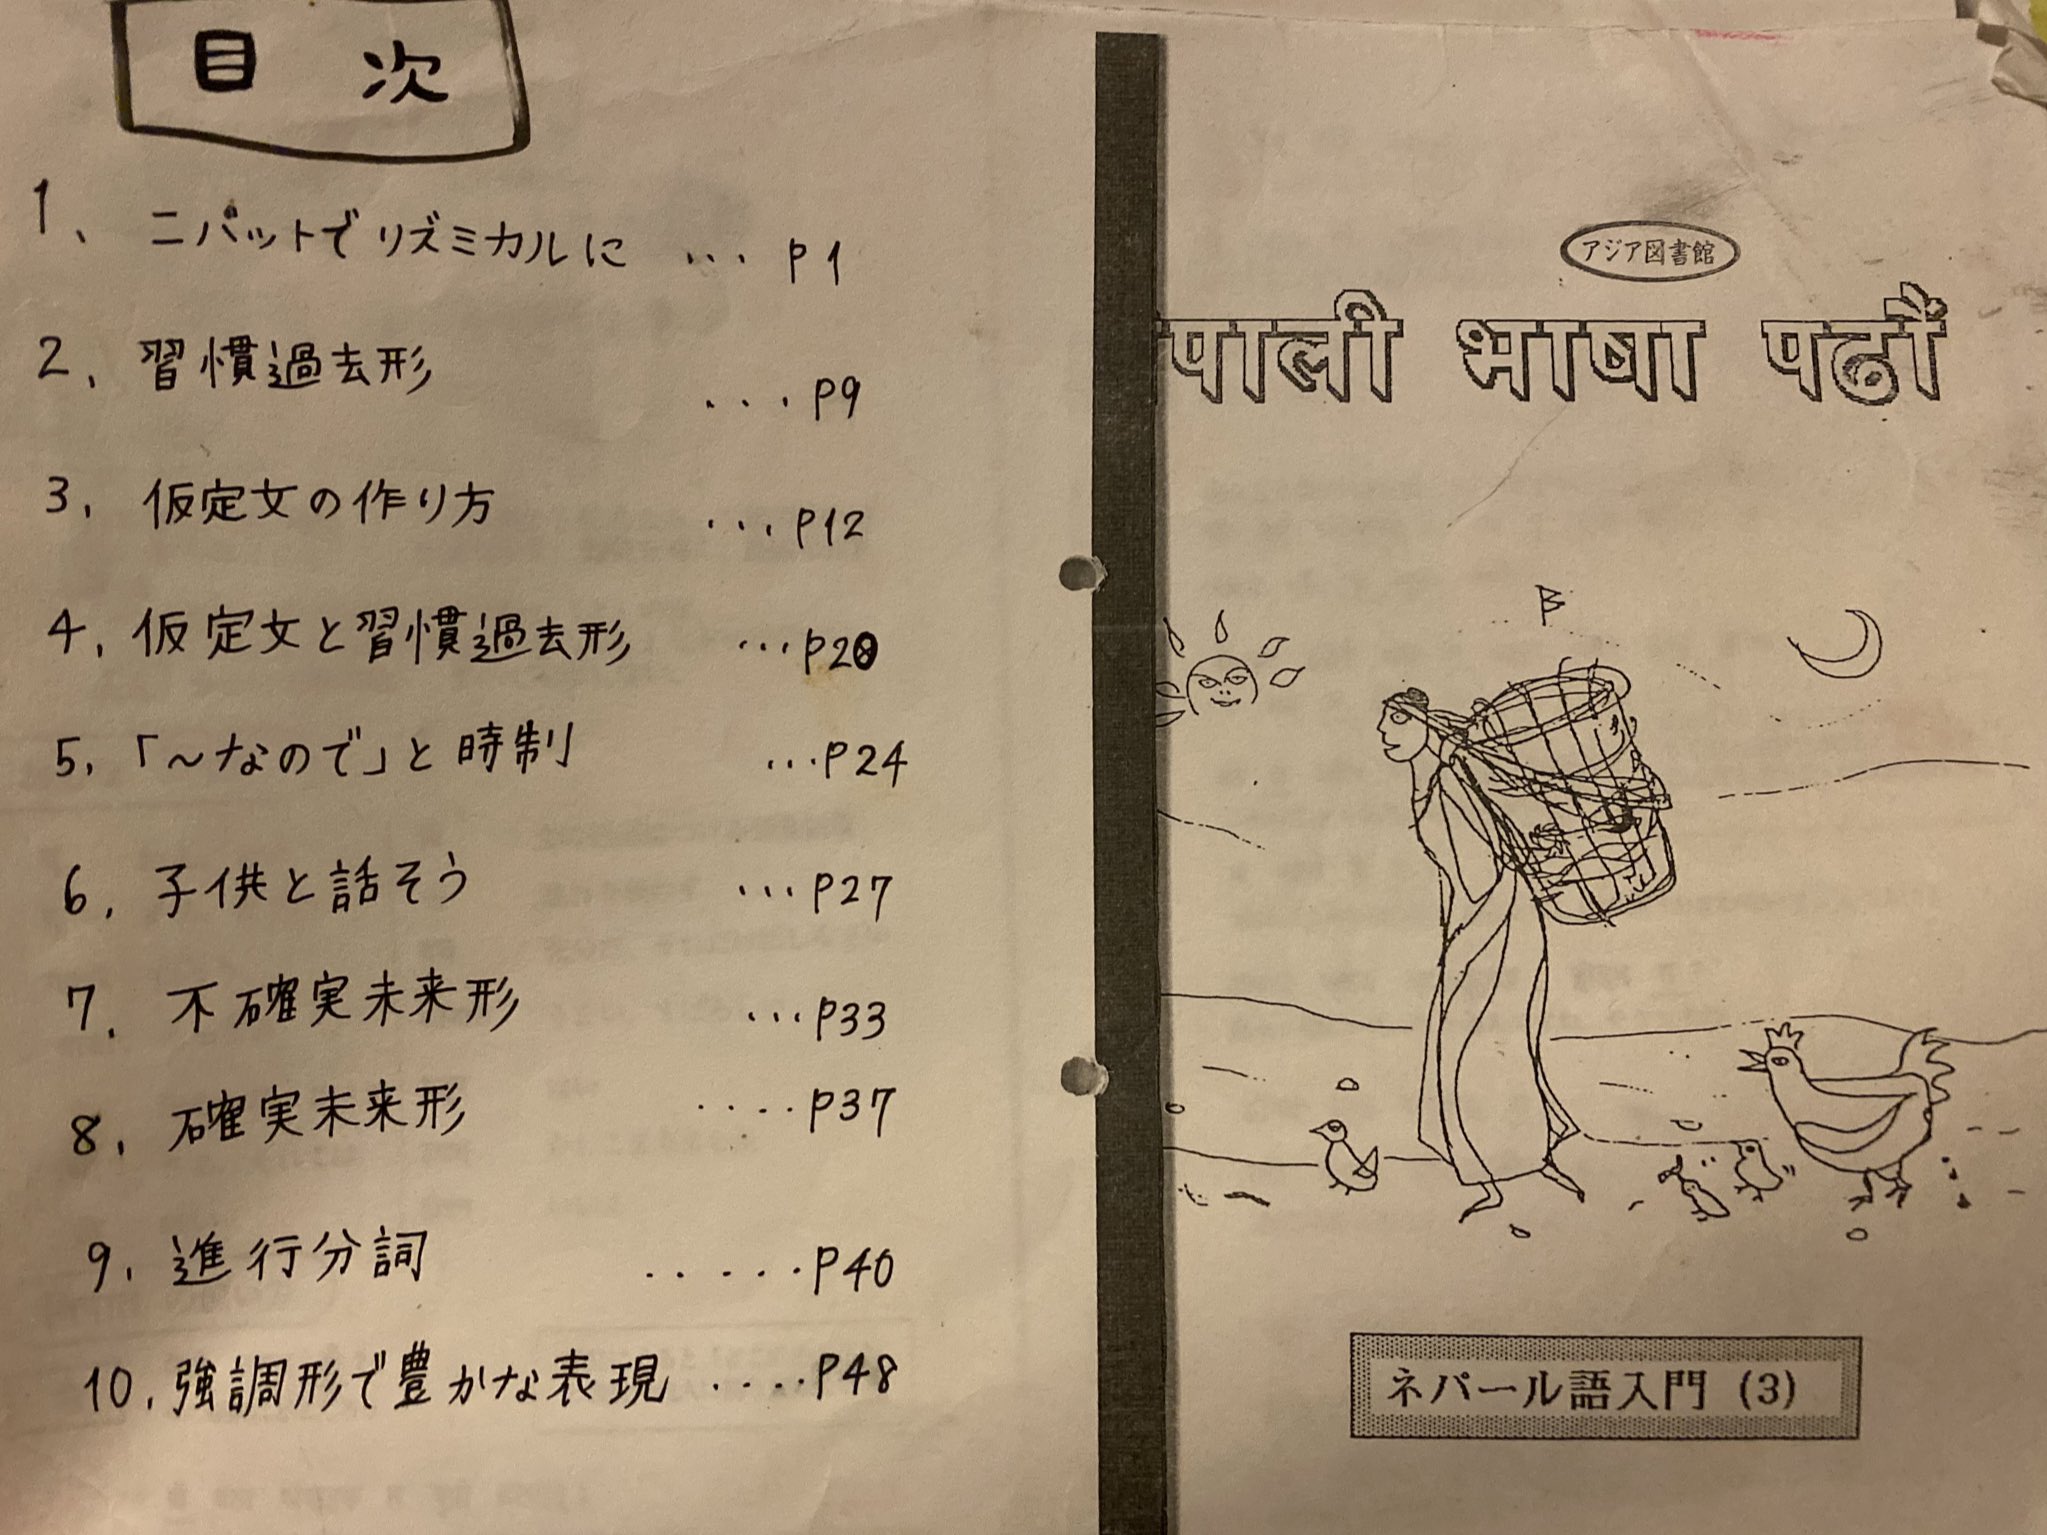 目次
1、ニパットでリズミカルに … P1
2、習慣過去形 … P9
3、仮定文の作り方 … P12
4、仮定文と習慣過去形 … P20
5、「〜なので」と時制 … P24
6、子供と話そう … P27
7、不確実未来形 … P33
8、確実未来形 …. P37
9、進行分詞 ..... P40
10、強調形で豊かな表現 .... P48
アジア図書館
पाली भाषा पढौं
ネパール語入門 (3)